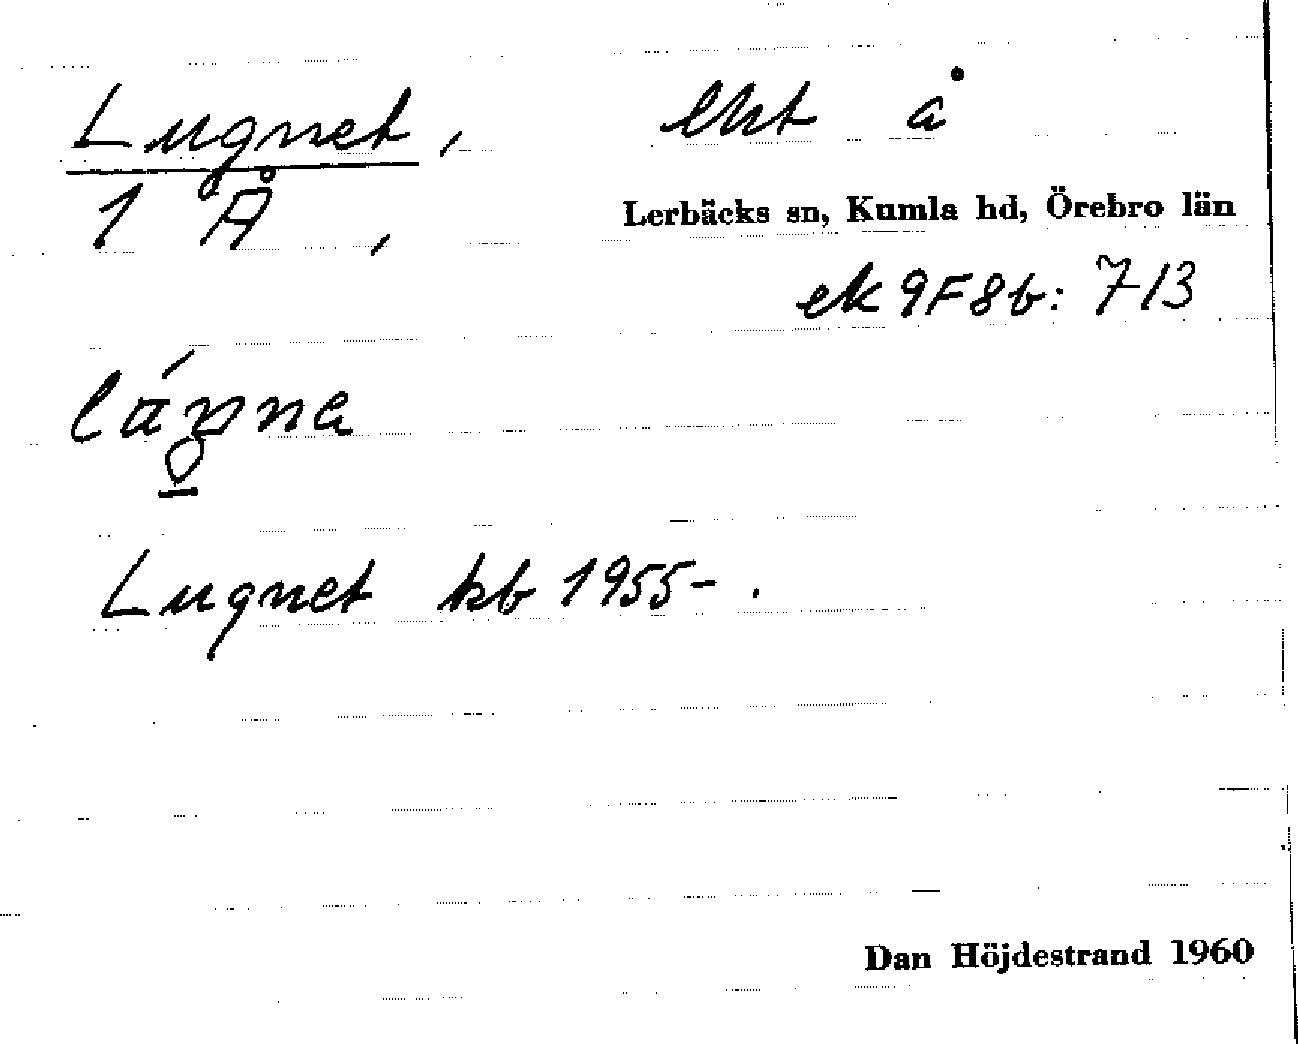 Lugnet, lht å
1 Å, Lerbäcks sn, Kumla hd, Örebro län
ek 9F8b: 7/3
Lugnet kb 1955- .
Dan Höjdestrand 1960